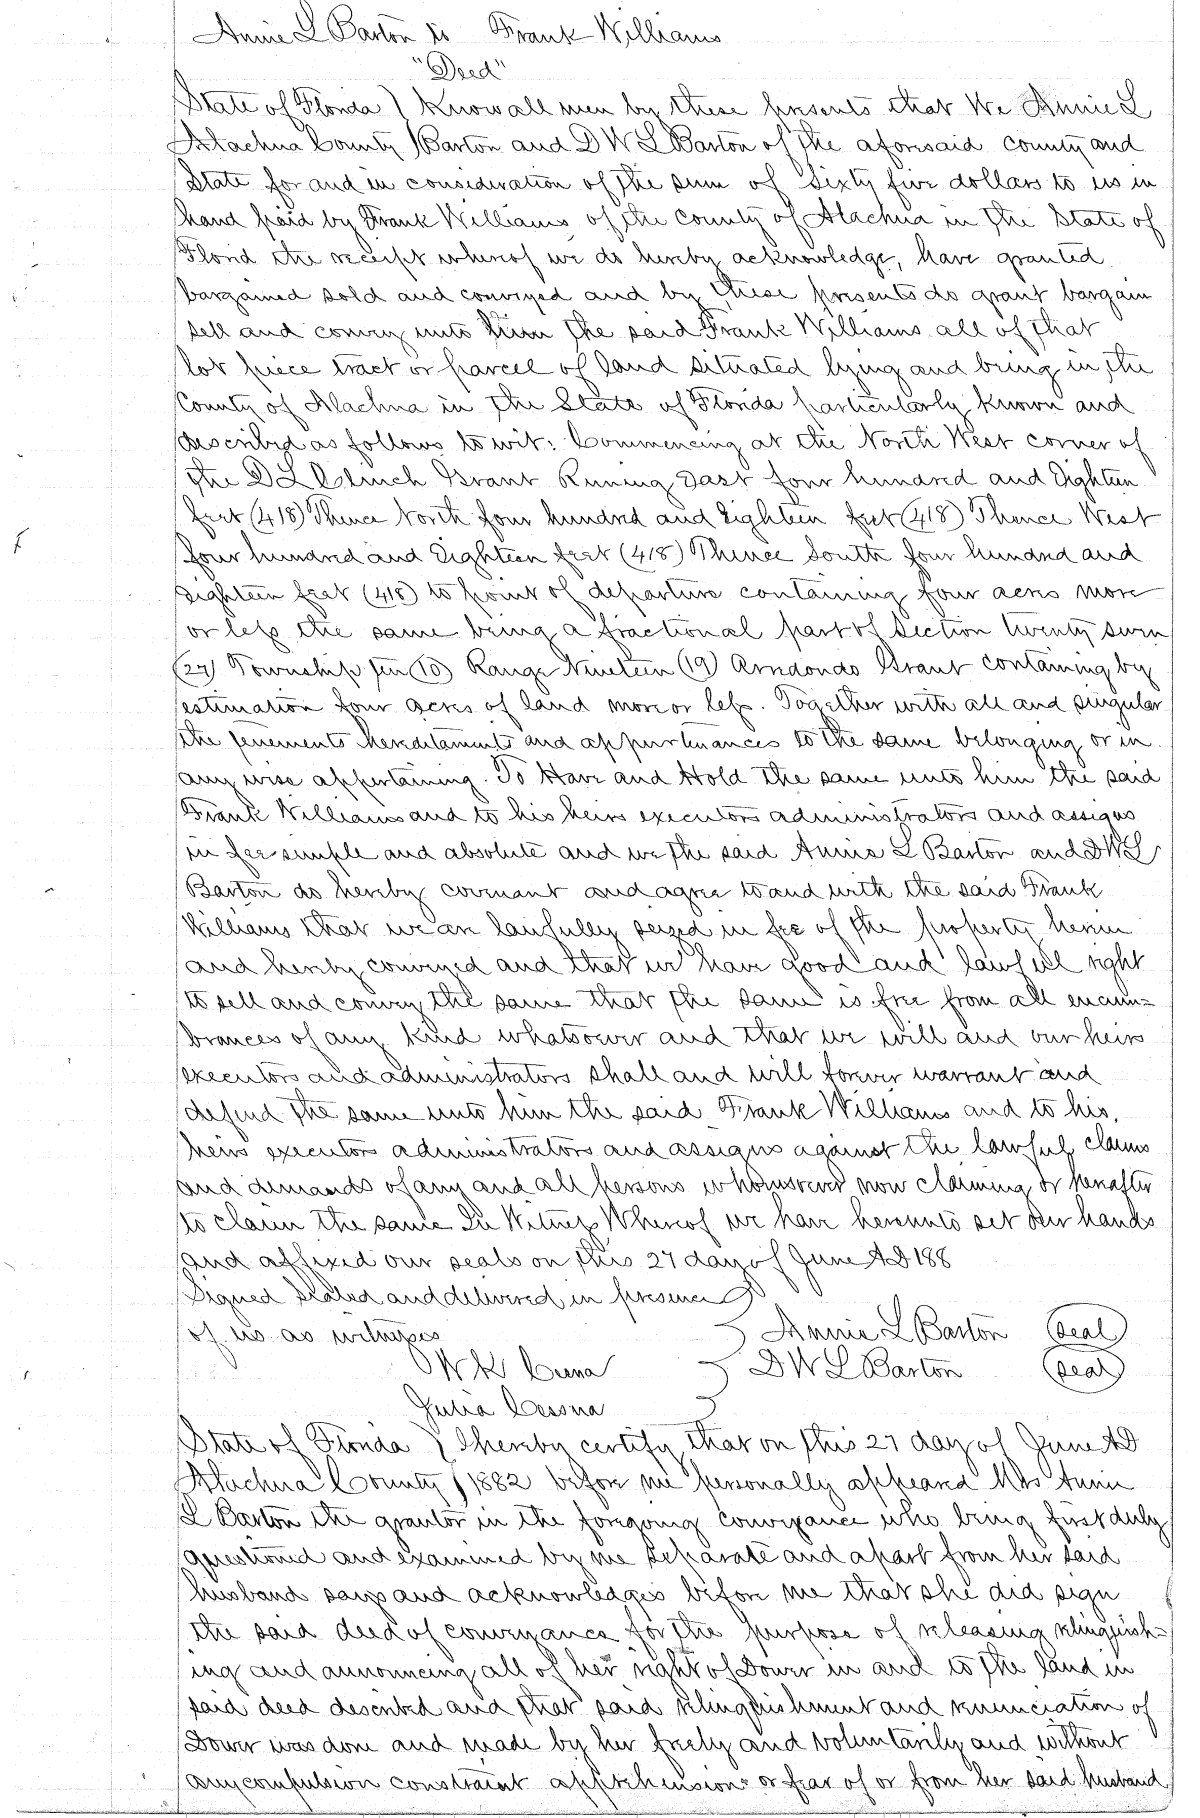 Annie L Barton to Frank Williams
"Deed"
State of Florida } Know all men by these presents that We Annie L
Alachua County } Barton and D W L Barton of the aforesaid county and
State for and in consideration of the sum of Sixty five dollars to us in
hand paid by Frank Williams of the County of Alachua in the State of
Florid the receipt whereof we do hereby acknowledge, have granted
bargained sold and conveyed and by these presents do grant bargain
sell and convey unto him the said Frank Williams all of that
lot piece tract or parcel of land situated lying and being in the
County of Alachua in the State of Florida particularly known and
described as follows to wit: Commencing at the North West corner of
the D L Clinch Grant Runing East four hundred and Eighteen
feet (418) Thence North four hundred and Eighteen feet (418) Thence West
four hundred and Eighteen feet (418) Thence South four hundred and
Eighteen feet (418) to point of departure containing four acres more
or less the same being a fractional part of Section twenty seven
(27) Township ten (10) Range Nineteen (19) Arredondo Grant containing by
estimation four acres of land more or less. Together with all and singular
the tenements hereditaments and appurtenances to the same belonging or in
any wise appertaining. To Have and Hold the same unto him the said
Frank Williams and to his heirs executors administrators and assigns
in fee simple and absolute and we the said Annie L Barton and D W L
Barton do hereby covenant and agree to and with the said Frank
Williams that we are lawfully seized in fee of the property herein
and hereby conveyed and that we have good and lawful right
to sell and convey the same that the same is free from all encum=
brances of any kind whatsoever and that we will and our heirs
executors and administrators shall and will forever warrant and
defend the same unto him the said Frank Williams and to his
heirs executors administrators and assigns against the lawful claims
and demands of any and all persons whomsoever now claiming or hereafter
to claim the same In Witness Whereof we have hereunto set our hands
and affixed our seals on this 27 day of June AD 188
Signed Sealed and delivered in presence }
of us as witnesses } Annie L Barton (seal)
W K Cessna } D W L Barton (seal)
Julia Cessna }
State of Florida } I hereby certify that on this 27 day of June AD
Alachua County } 1882 before me personally appeared Mrs Annie
L Barton the grantor in the foregoing conveyance who being first duly
questioned and examined by me separate and apart from her said
husband says and acknowledges before me that she did sign
the said deed of conveyance for the purpose of releasing relinquish=
ing and announcing all of her right of Dower in and to the land in
said deed described and that said relinquishment and renunciation of
Dower was done and made by her freely and voluntarily and without
any compulsion constraint apprehension or fear of or from her said husband